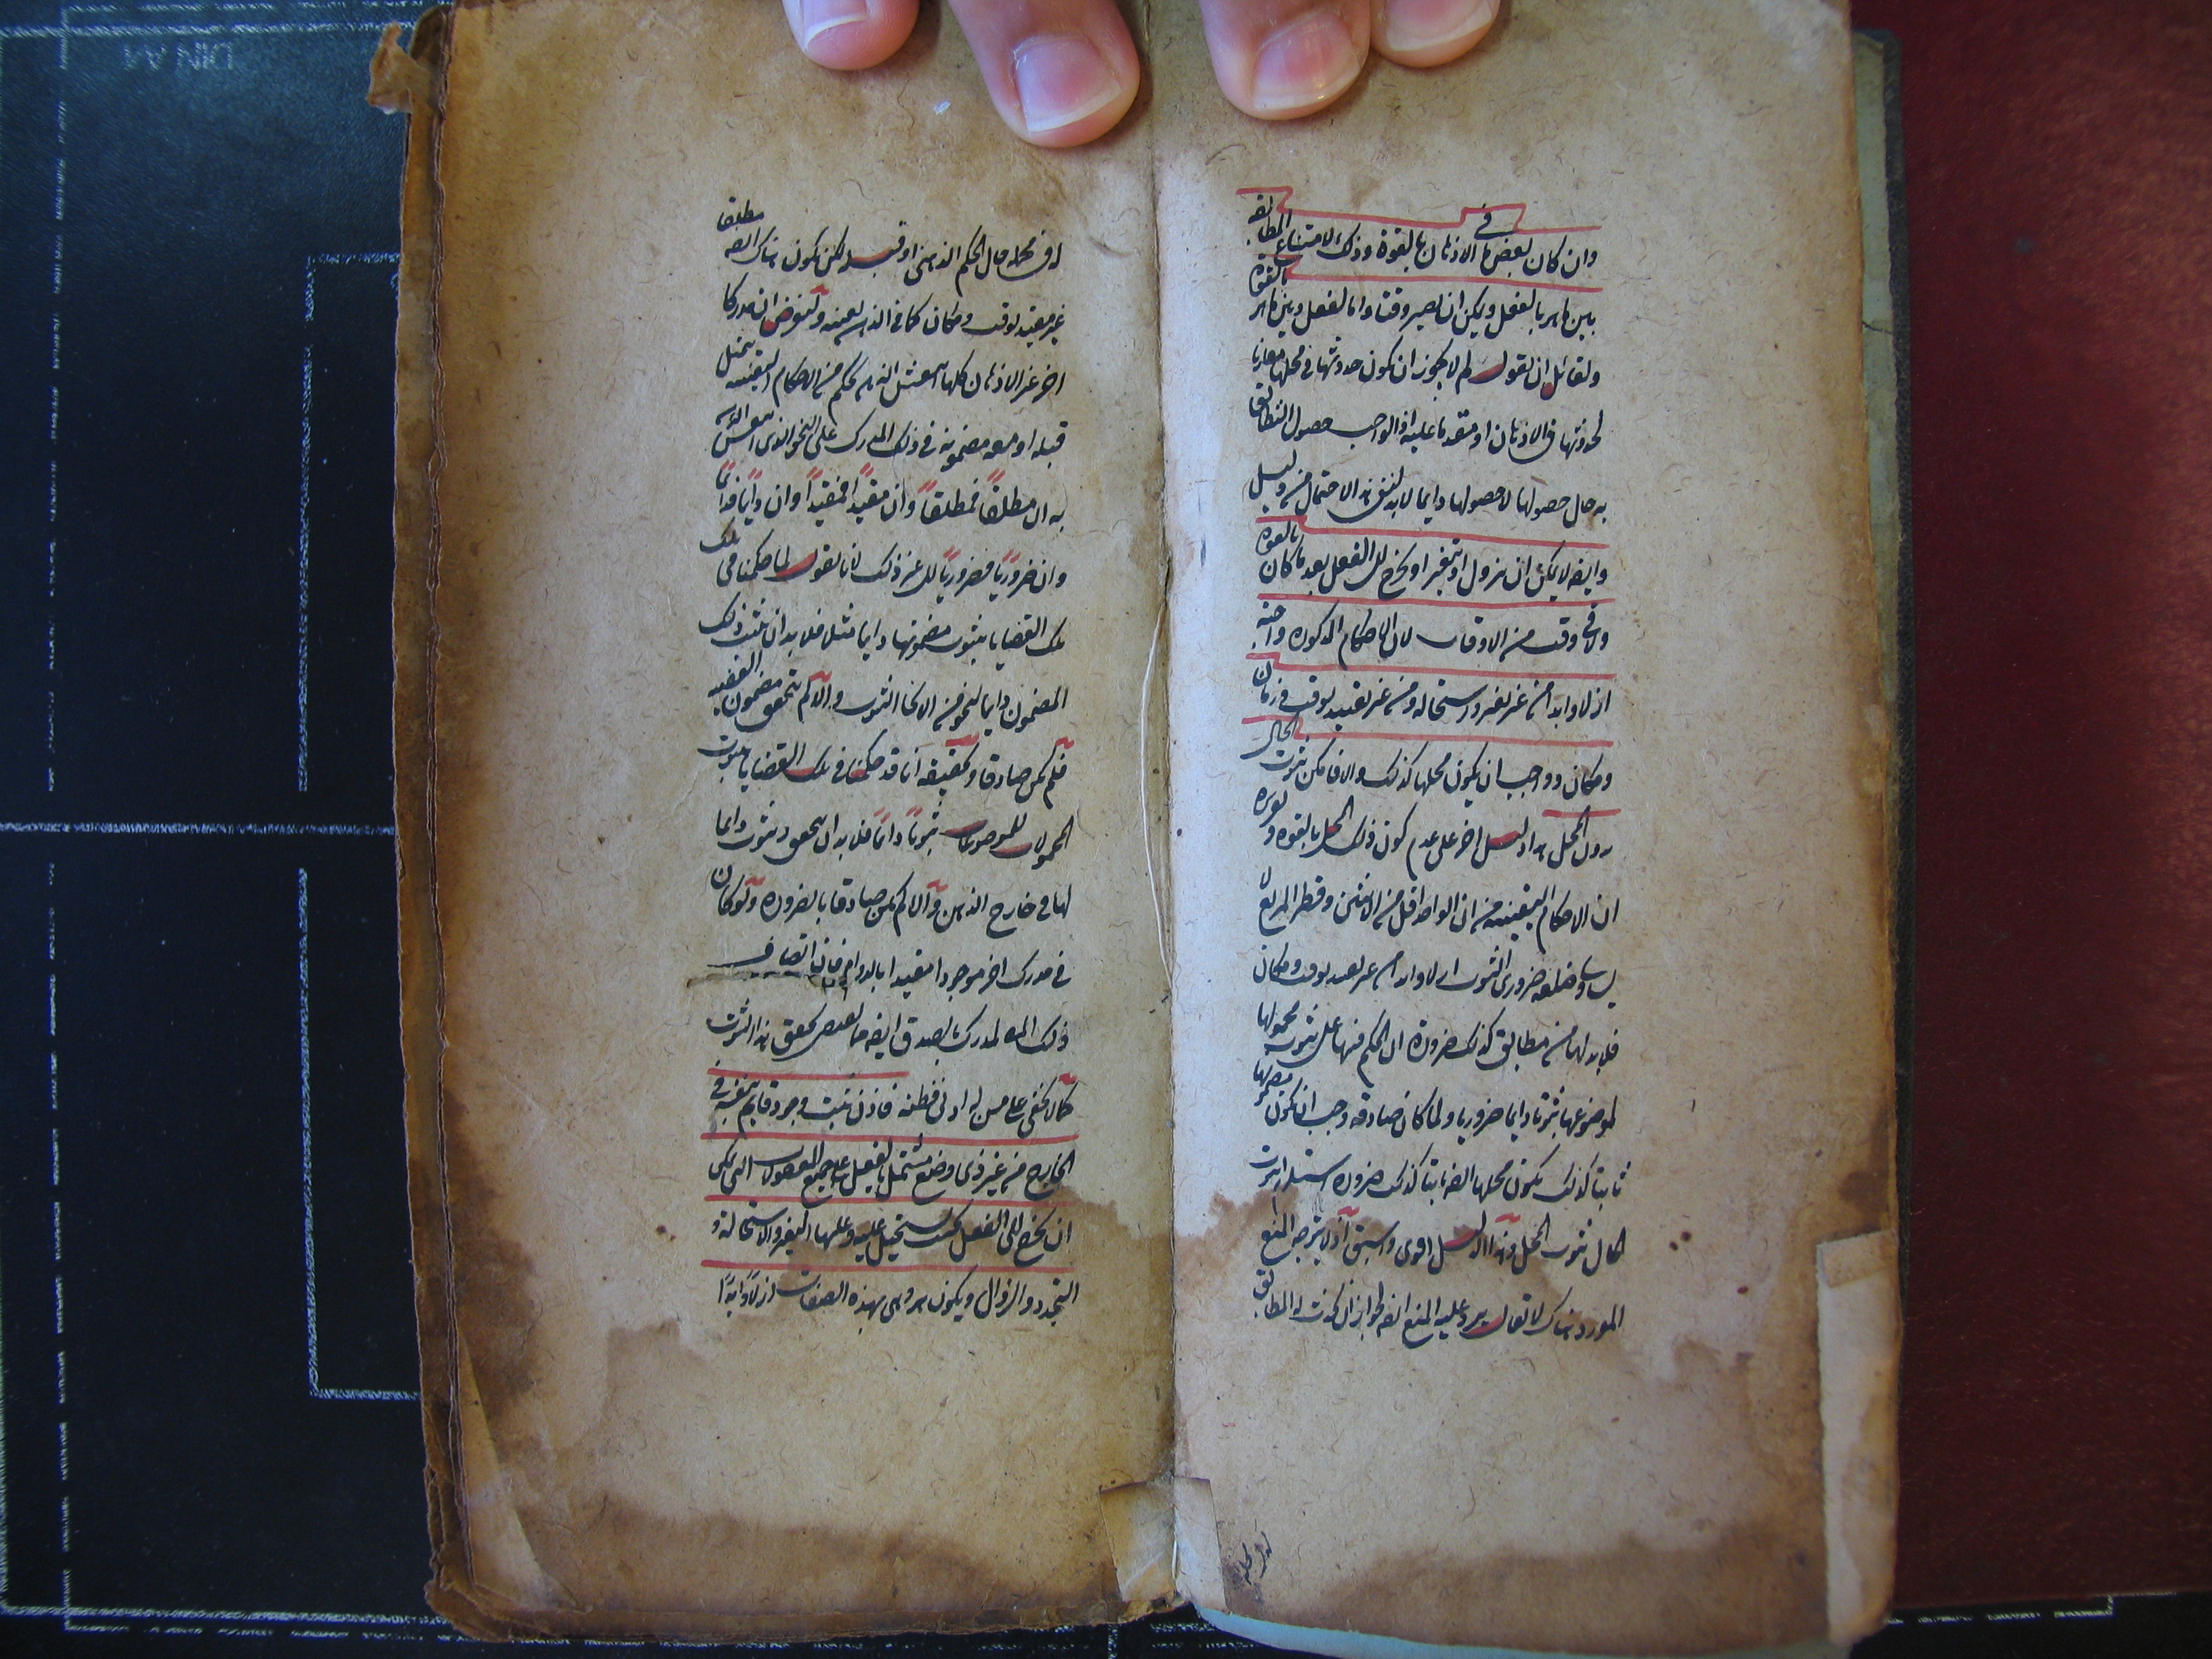 وان كان بعض ما في الاذهان بالقوة وذلك لامتناع المطابقة
بين ما هو بالفعل ويمكن ان يصير وقتا ما بالفعل وبين ما هو بالقوة
ولقائل ان يقول لم لا يجوز ان يكون حدوثها في محلها مقارنا
لحدوثها في الاذهان او متقدما عليه اذ الواجب حصول التطابق
به حال حصولها لا حصولها دايما لا بد لنفي هذا الاحتمال من دليل
وايضه لا يمكن ان يزول او يتغير او يخرج الى الفعل بعد ما كان بالقوة
ولا في وقت من الاوقات لان الاحكام المذكورة واجبة
ازلا وابدا من غير تغير واستحالة ومن غير تقييد بوقت وزمان
ومكان وواجب ان يكون محلها كذلك والا فامكن ثبوت الحال
بدون المحل هذا دليل اخر على عدم كون ذلك المحل بالقوة وتقريره
ان الاحكام اليقينية من ان الواحد اقل من الاثنين وقطر المربع لا
يساوي ضلعه ضروري الثبوت ازلا وابدا من غير تقييد بوقت ومكان
فلا بد لها من مطابق كذلك ضرورة ان الحكم فيها على ثبوت محمولها
لموضوعها ثبوتا دايما ضروريا ولما كان صادقة وجب ان يكون مضمونها
ثابتا كذلك يكون محلها ايضه ثابتا كذلك ضرورة استلزام ثبوت
الحال ثبوت المحل وهذا الدليل اقوى واسبق اذ لا يتوجه المنع
المورد هناك لا يقال يرد عليه المنع ايضه لجواز ان يحدث له المطابق
له في محله حال الحكم الذهني او قبله ولكن يكون هناك ايضه مطلقا
غير مقيد بوقت ومكان كما في الذهن بعينه ولنفرض ان مدركا
اخر غير الاذهان كلها يتمثل الذهن بحكم من الاحكام اليقينية
قبله او معه مضمونه في ذلك المدرك على النحو الذي
به ان مطلقًا فمطلقًا وان مقيدًا فمقيدًا وان دايمًا فدايمًا
وان ضروريًا فضروريًا الى غير ذلك لانا نقول لما حكمنا في
تلك القضايا بثبوت مضمونها دايما مثلا فلا بد ان يثبت ذلك
المضمون دايما بنحو من الانحاء الثبوت والا لم يتحقق مضمون القضية
فلم يكن صادقا وتحقيقه انا قد حكمنا في تلك القضايا بثبوت
المحمولات للموضوعات ثبوتًا دائمًا فلا بد ان يتحقق ثبوت دايما
لها في خارج الذهن والا لم يكن صادقا بالضرورة ولو كان
في مدرك اخر موجودا مقيدا بالدوام فان اتصاف
ذلك المدرك بالصدق ايضه تحقق هذا الثبوت
كما لا يخفى على من له ادنى فطنة فاذن ثبت وجود قايم بنفسه في
الخارج من غير ذي وضع مشتمل بالفعل على جميع المعقولات التي يمكن
ان يخرج الى الفعل بحيث يستحيل عليه وعليها التغير والاستحالة و
التجدد والزوال ويكون هو وهي بهذه الصفات ازلًا وابدًا